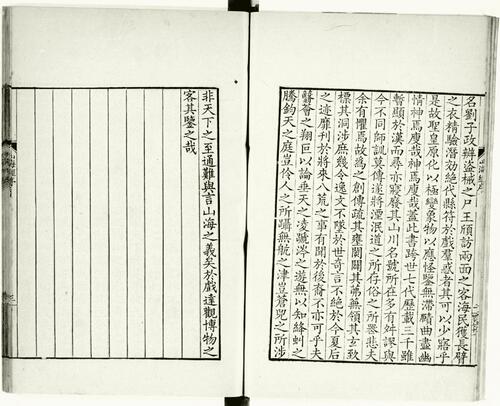 名劉子政辨盜械之尸王頎訪兩面之客海民獲長臂
之衣精驗潛効絶代縣符於戲羣惑者其可以少寤乎
是故聖皇原化以極變象物以應怪鑒無滯賾曲盡幽
情神焉廋哉神焉廋哉蓋此書跨世七代歷載三千雖
暫顯於漢而尋亦寢廢其山川名號所在多有舛謬與
今不同師訓莫傳遂將湮泯道之所存俗之所喪悲夫
余有懼焉故爲之創傳疏其壅閡闢其茀蕪領其玄致
標其洞涉庶幾令逸文不墜於世奇言不絶於今夏后
之迹靡刊於將來八荒之事有聞於後裔不亦可乎夫
蘙薈之翔叵以論垂天之凌蹏涔之遊無以知絳虯之
騰鈞天之庭豈伶人之所躡無航之津豈蒼兕之所涉
非天下之至通難與言山海之義矣於戲達觀博物之
客其鑒之哉